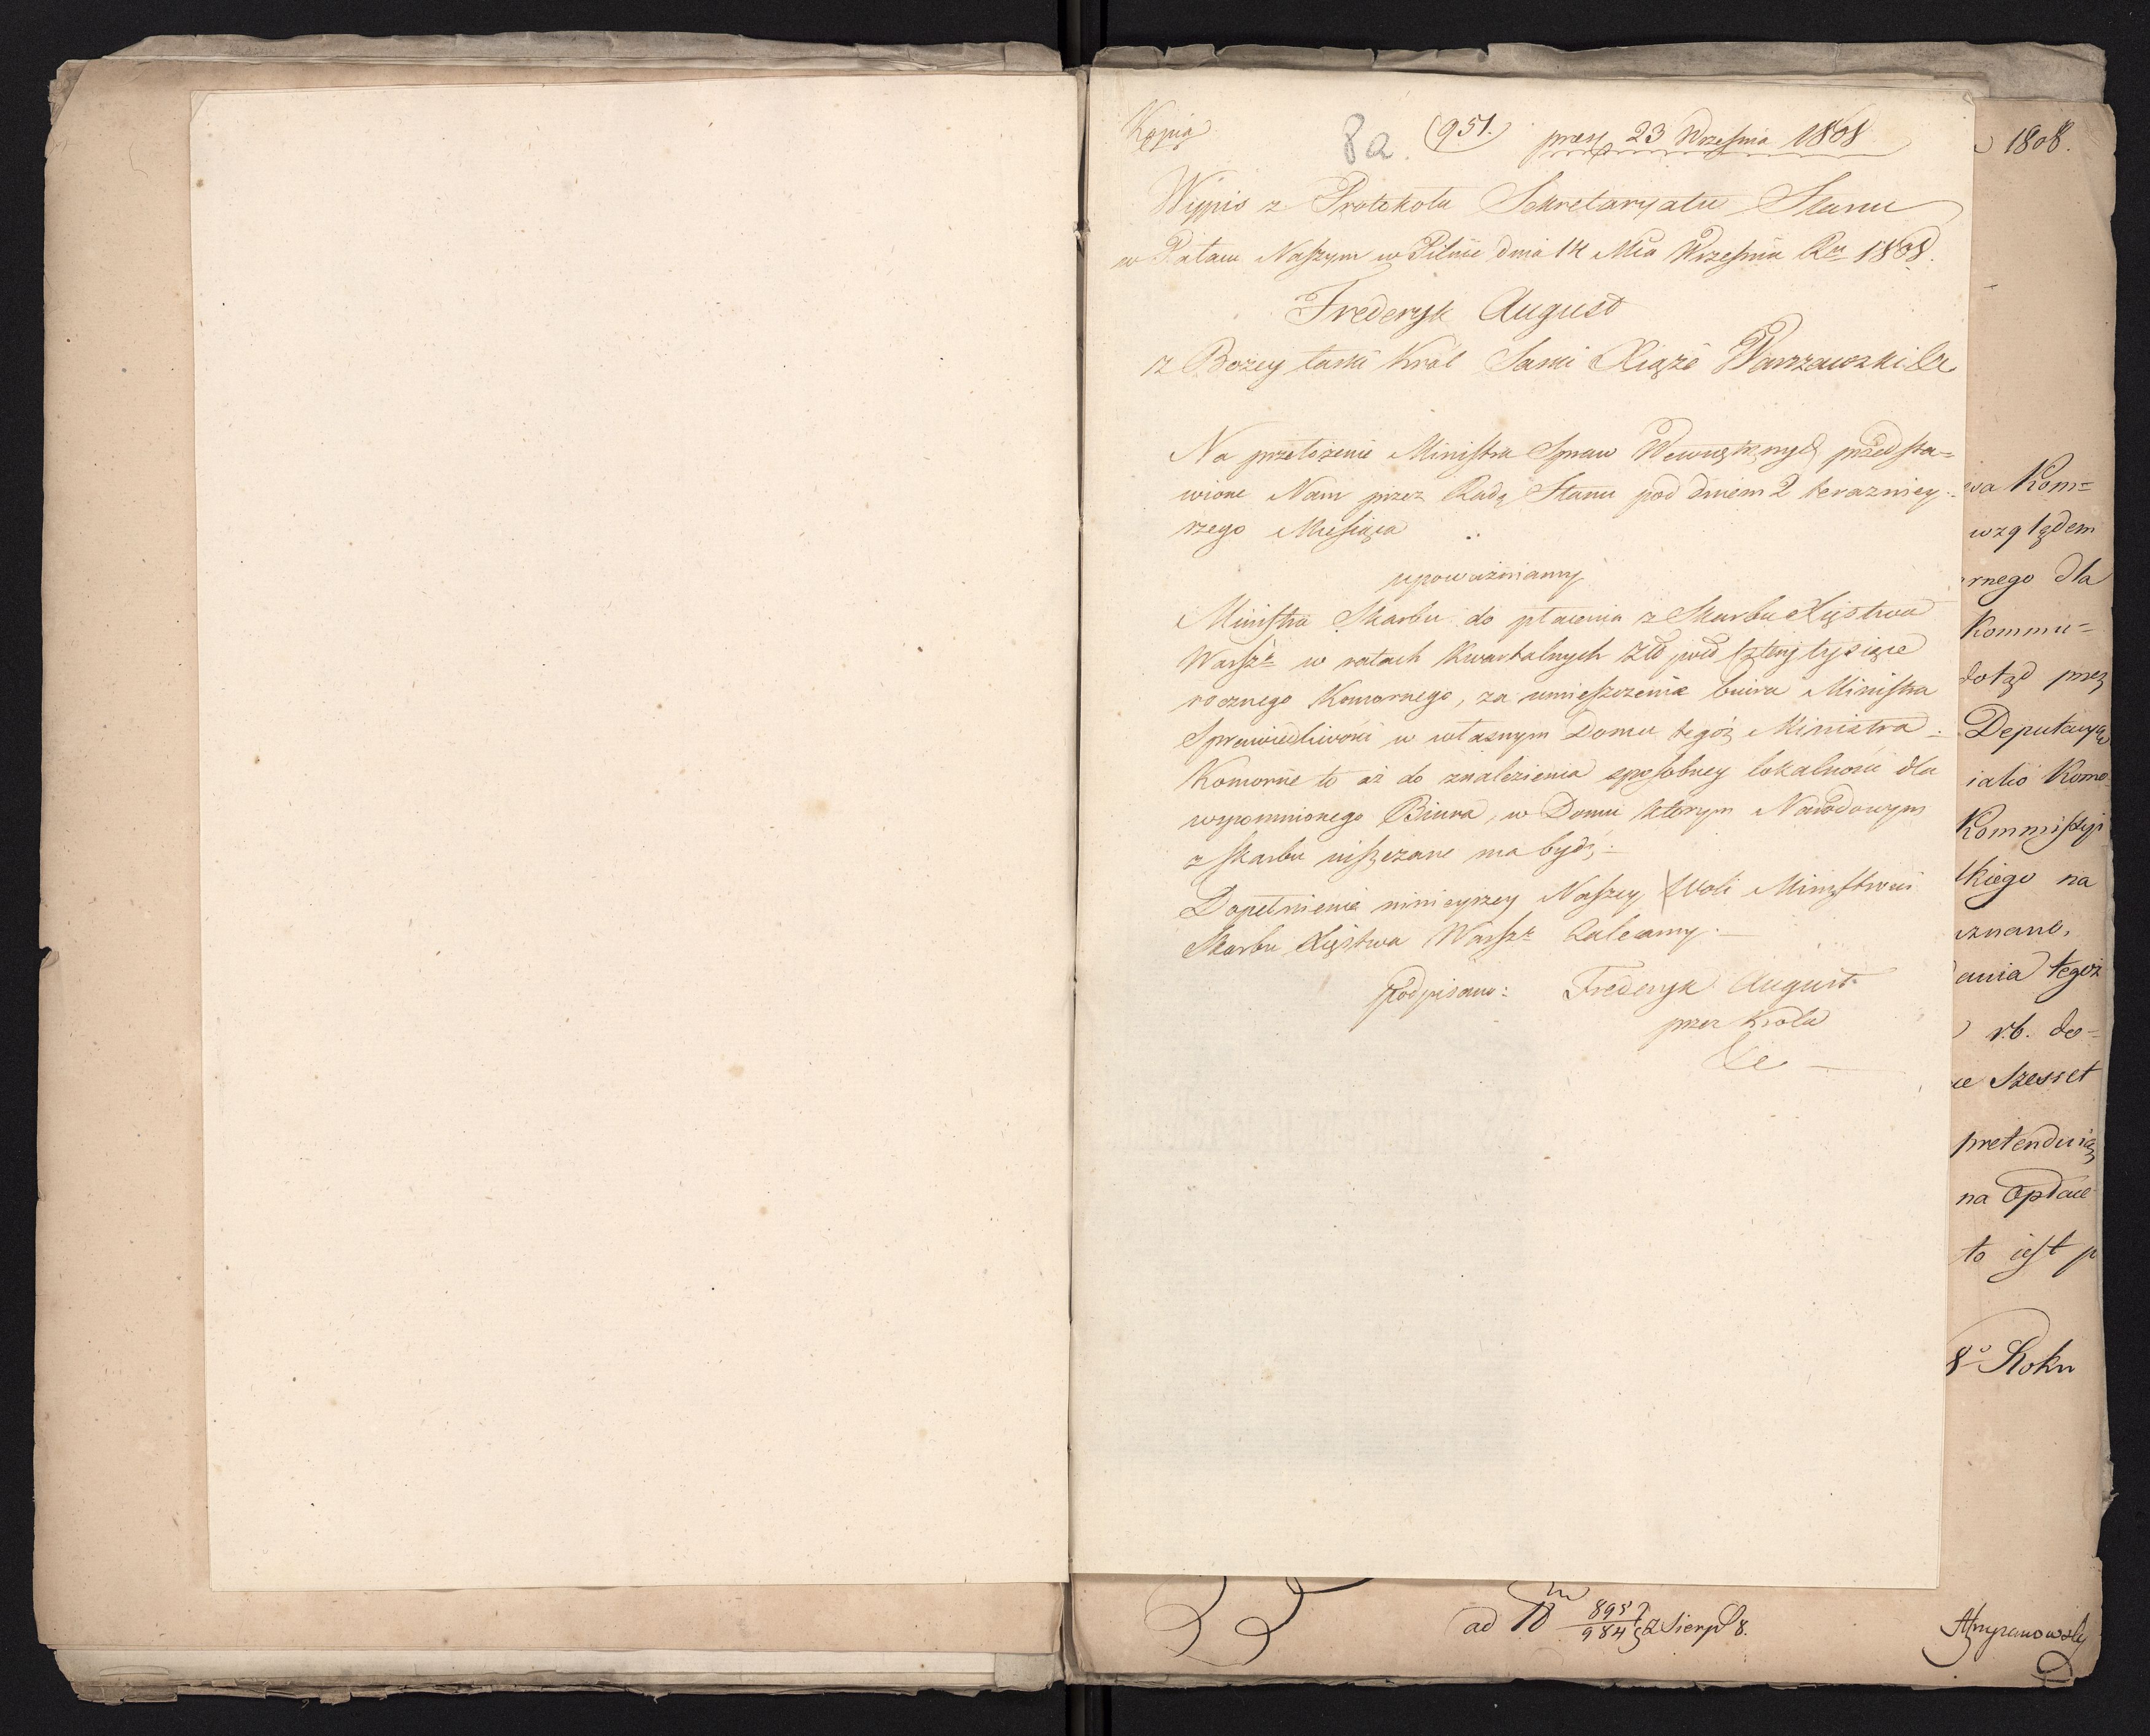 Kopia
8a. (951.) prez 23 Wrzesnia 1808
Wypis z Protokołu Sekretaryatu Stanu
w Pałacu Naszym w Pilnic dnia 14 Mca Wrzesnia Ru 1808.
Frederyk August
z Bożey łaski Król Saski Xiąże Warszawski &c
Na przełożenie Ministra Spraw Wewnętrznych przedsta=
wione Nam przez Radę Stanu pod dniem 2 terazniey=
szego Miesiąca
upoważniamy
Ministra Skarbu do płacenia z Skarbu Xięstwa
Warszo w ratach Kwartalnych Złł pol cztery tysiące
rocznego Komornego, za umieszczenie biura Ministra
Sprawiedliwości w własnym Domu tegóż Ministra.
Komorne to aż do znalezienia sposobney lokalności dla
wspomnionego Biura, w Domu którym Narodowym
z Skarbu uiszczane ma bydź.
Dopełnienie ninieyszey Naszey Woli Ministrowi
Skarbu Xięstwa Warszo zalecamy.
podpisano: Frederyk August
przez Króla
&c
1808.
Kom=
względem
rnego dla
Kommu=
dotąd przez
Deputacyą
Kommissyi
na
znane,
ania tegoż
r.b. do=
pretenduią
na Opłace
to iest p
8o Roku
ad N 8957/984 z Sierp 8.